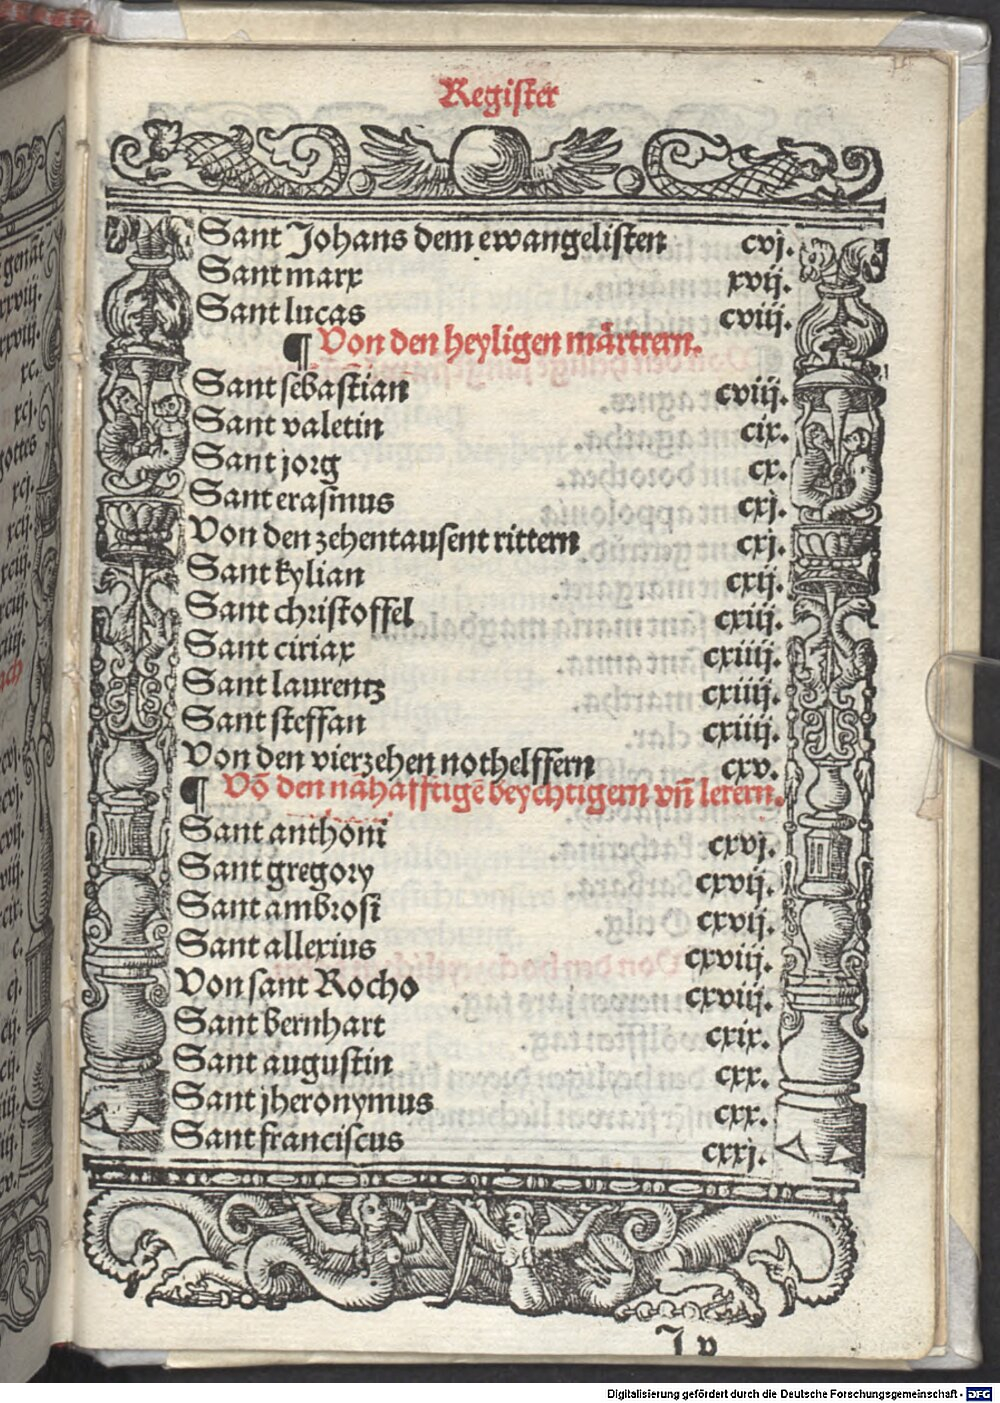 Register
Sant Johans dem ewangelisten cvj.
Sant marx xvij.
Sant lucas cviij.
¶ Von den heyligen mårtrern.
Sant sebastian cviij.
Sant valetin cix.
Sant jorg cx.
Sant erasmus cxj.
Von den zehentausent rittern cxj.
Sant kylian cxij.
Sant christoffel cxiij.
Sant ciriax cxiiij.
Sant laurentz cxiiij.
Sant steffan cxiiij.
Von den vierzehen nothelffern cxv.
¶ Võ den nãhafftigẽ beychtigern vñ lerern.
Sant anthoni cxvj.
Sant gregory cxvij.
Sant ambrosi cxvij.
Sant allexius cxviij.
Von sant Rocho cxviij.
Sant bernhart cxix.
Sant augustin cxx.
Sant jheronymus cxx.
Sant franciscus cxxj.
J v
Digitalisierung gefördert durch die Deutsche Forschungsgemeinschaft - DFG